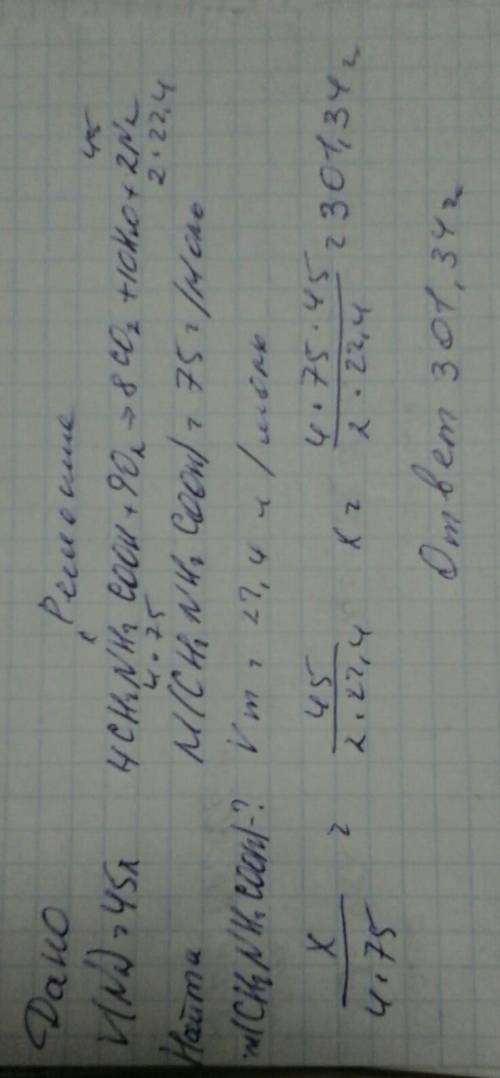 Дано
V(N2) = 45л
Найти
m(CH2NH2COOH)-?
Решение
x 45
4CH2NH2COOH + 9O2 → 8CO2 + 10H2O + 2N2
4·75 2·22,4
M(CH2NH2COOH) = 75 г/моль
Vm = 22,4 л/моль
x/4·75 = 45/2·22,4 x = 4·75·45/2·22,4 = 301,34г
Ответ 301,34г